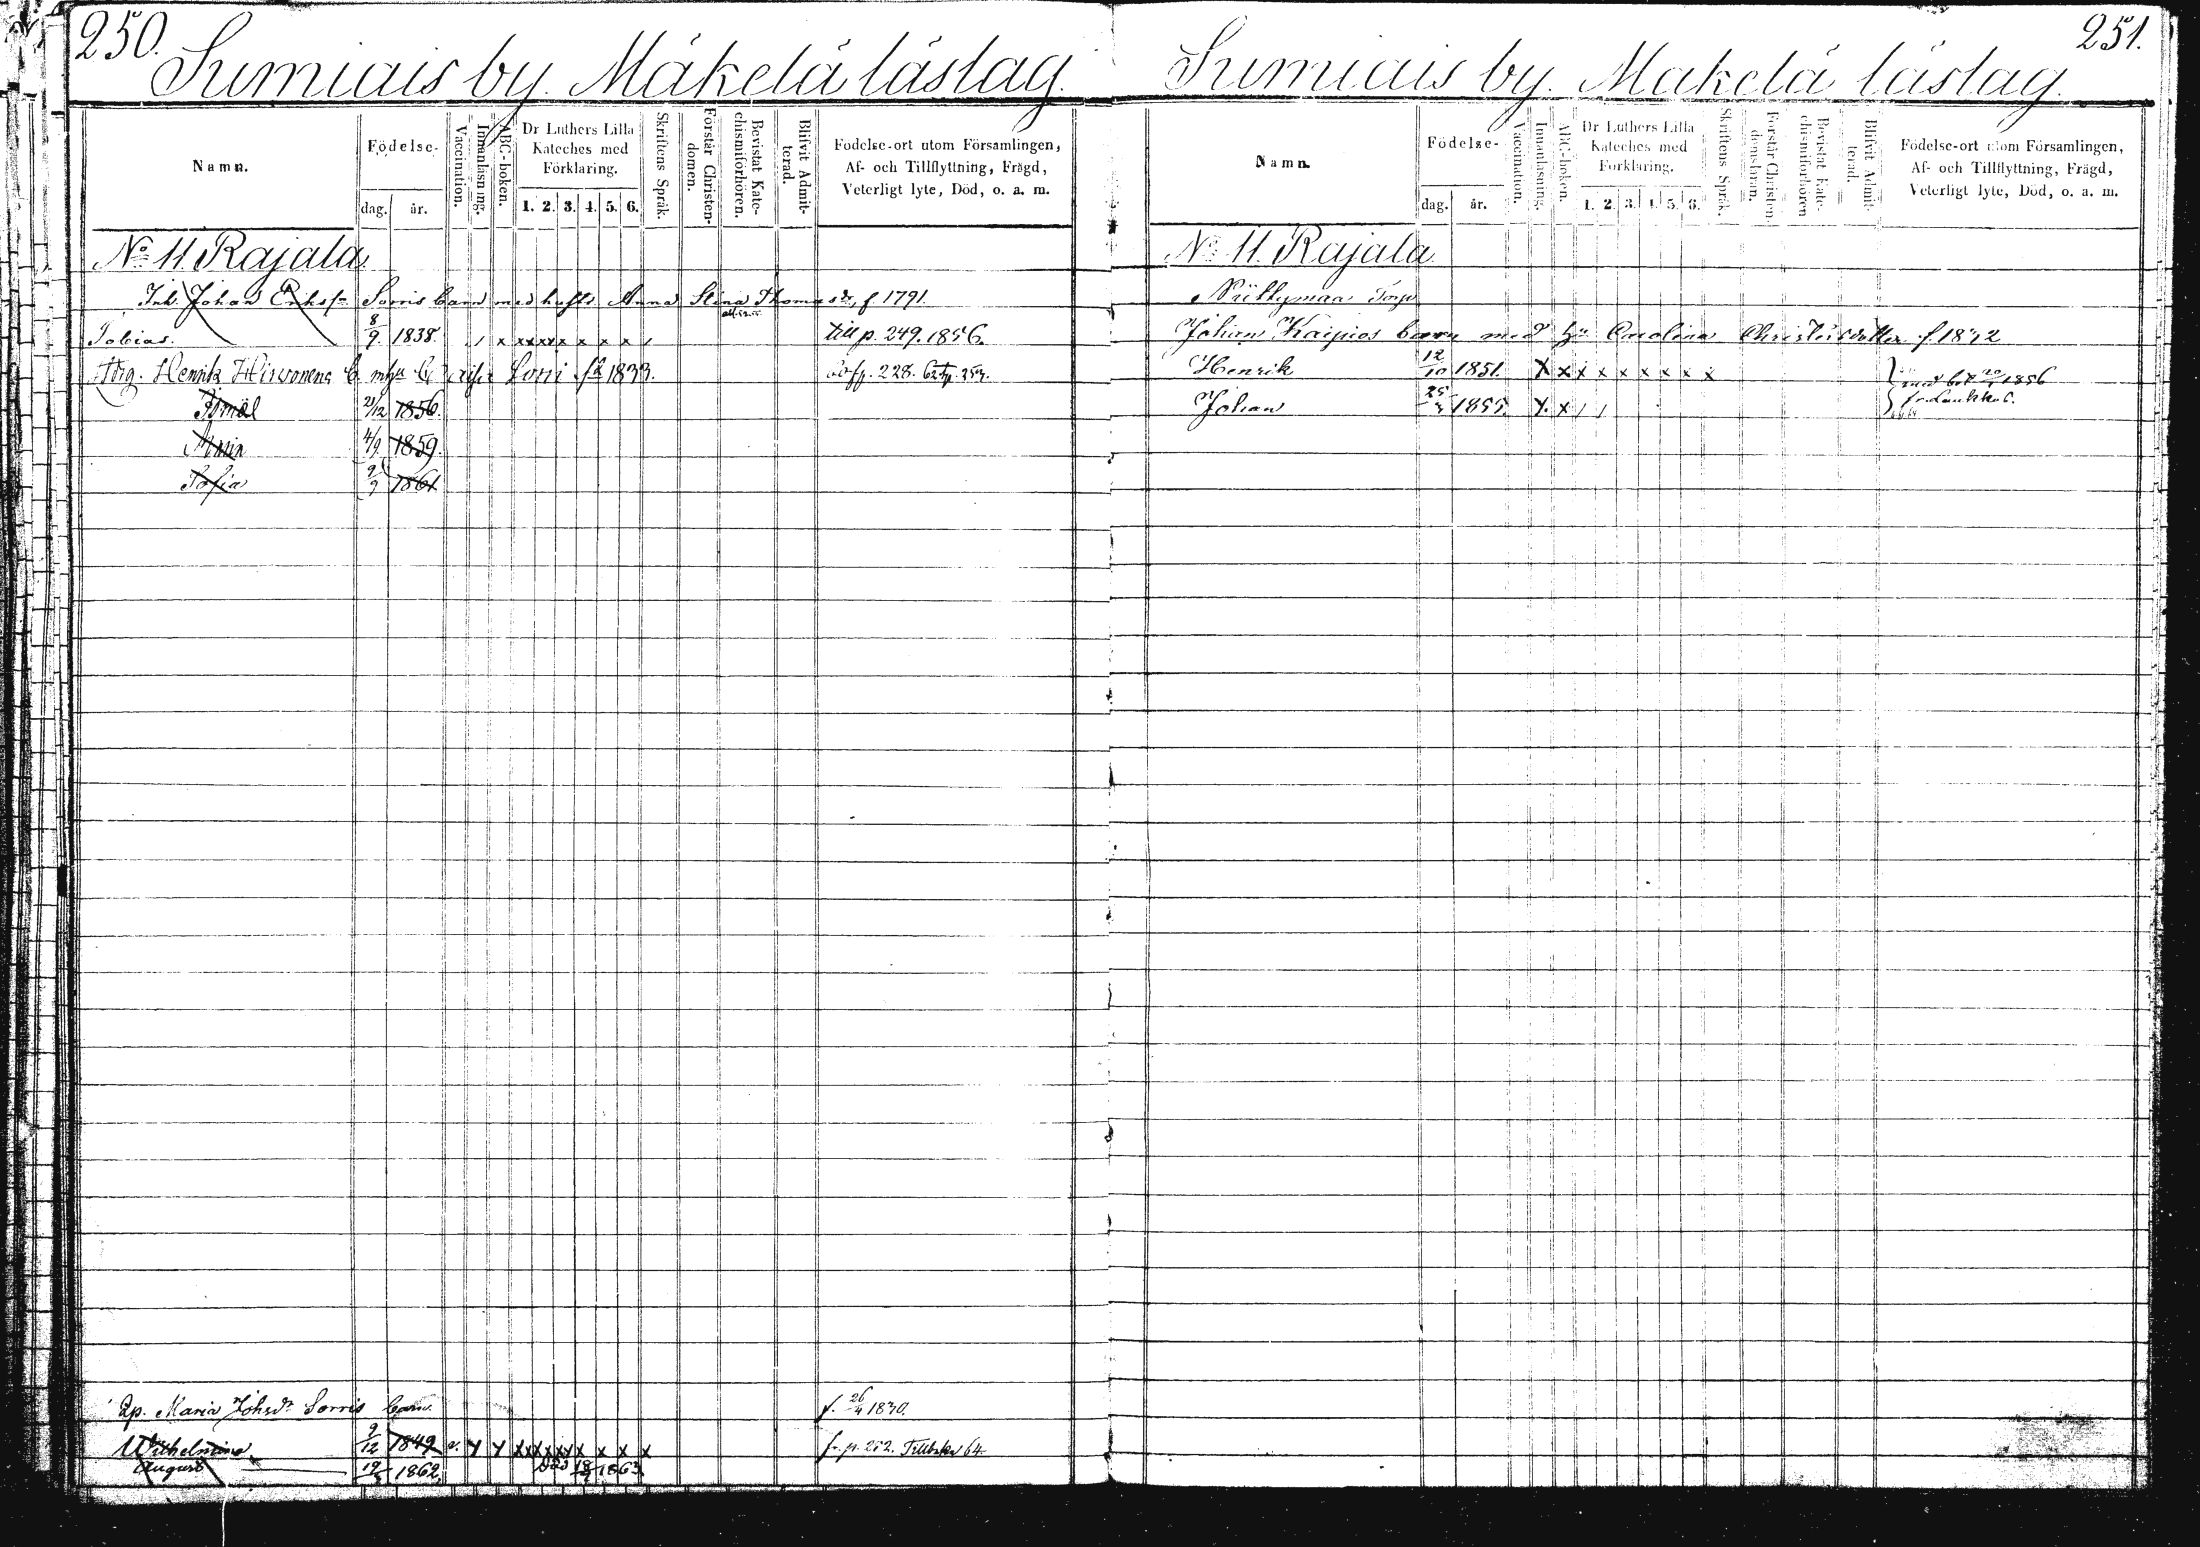 250.
Sumiais by. Mäkelä läslag.
Namn.
Födelse-
dag. år.
Vaccination.
Innanläsning.
ABC-boken.
Dr Luthers Lilla
Kateches med
Förklaring.
1. 2. 3. 4. 5. 6.
Skriftens Språk.
Förstår Christen-
domen.
Bevistat Kate-
chismiförhören.
Blifvit Admit-
terad.
Födelse-ort utom Församlingen,
Af- och Tillflyttning, Frägd,
Veterligt lyte, Död, o. a. m.
No 11 Rajala
Inh. Johan Erikss. Sorris barn med hustr. Anna Stina Thomasdr, f 1791.
Tobias. 8/9 1838. x x x x x x x x till p. 249. 1856.
Henrik Hirvonens b. Sorri 1833. p. 228.
21/12 1856.
Maria 4/9 1859.
Sofia 1861
Qp. Maria Johsdr Sorris barn. f. 26/4 1830.
Wilhelmina 9/12 1849 v. y y x x x x x x x x x fr. p. 64.
August 1862 död 1863.
251.
Sumiais by. Mäkelä läslag.
Namn.
Födelse-
dag. år.
Vaccination.
Innanläsning.
ABC-boken.
Dr Luthers Lilla
Kateches med
Förklaring.
1. 2. 3. 4. 5. 6.
Skriftens Språk.
Förstår Christen-
domsläran.
Bevistat Kate-
chismiförhören
Blifvit Admit-
terad.
Födelse-ort utom Församlingen,
Af- och Tillflyttning, Frägd,
Veterligt lyte, Död, o. a. m.
No 11. Rajala
Torp
Johan Kaipios barn med hu Carolina Christersdotter f.
Henrik 12/10 1851. x x x x x x x x x med bet. 1856
Johan 1855. x. x fr. Laukka